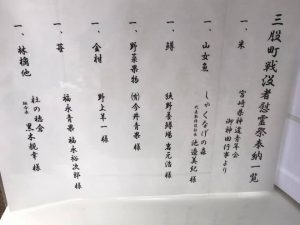 三股町戦没者慰霊祭奉納一覧
一、米
宮崎県神道青年会
御神田行事より
一、山女魚
しゃくなげの森
池邉美紀様
一、鱒
狭野養鱒場 岩元浩様
一、野菜果物
㈲今井青果様
一、金柑
野上羊一様
一、苺
福永青果 福永裕次郎様
一、林檎他
杜の穂会
黒木規幸様